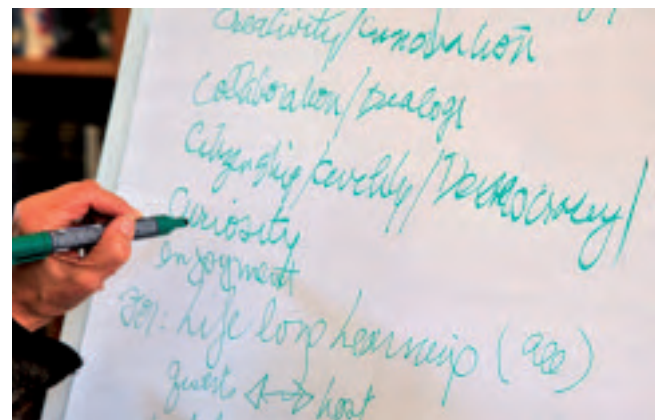 Creativity/Innovation
Collaboration/Dialoge
Citizenship/ /Democracy/
Curiosity
enjoyment
for: Life long Learning (all)
guest ↔ host